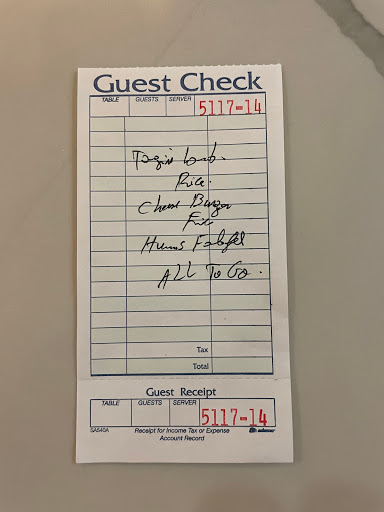 Guest Check
TABLE GUESTS SERVER
5117-14
Tagin Lamb.
Rice.
Cheese Burger
Fries
Humus Falafel
ALL To Go.
Tax
Total
Guest Receipt
TABLE GUESTS SERVER
5117-14
SA640A Receipt for Income Tax or Expense adams
Account Record